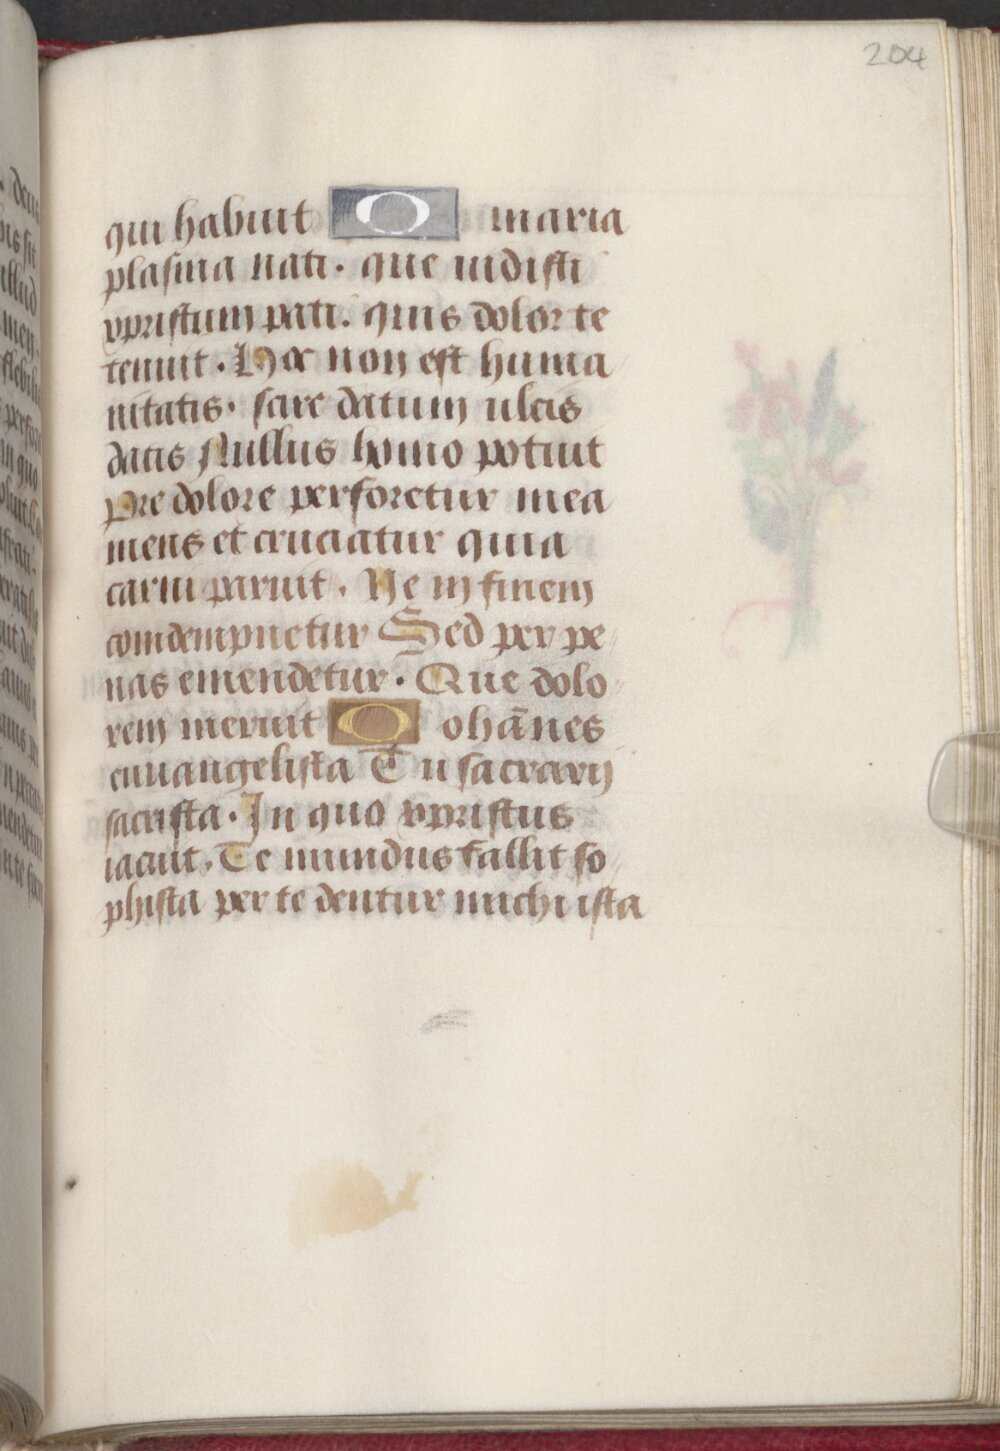 204
qui habuit O maria
plasma nati. que uidisti
xpristum pati. quis dolor te
tenuit. Hoc non est huma
nitatis. scire datum ulcis
datis Nullus homo potuit
Pre dolore perforetur mea
mens et cruciatur quia
carni paruit. Ne in finem
comdempnetur Sed per pe
nas emendetur. Que dolo
rem meruit O ohānes
euuangelista Tu sacrarij
sacrista. In quo xpristus
iacuit. Te mundus fallit so
phista per te dentur michi ista